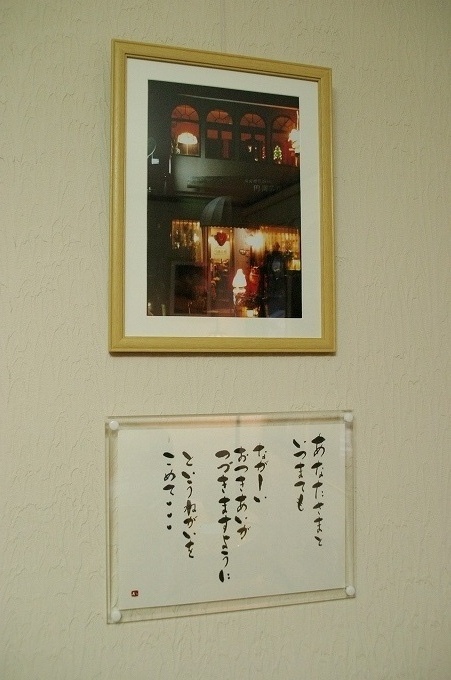 あなたさまと
いつまでも
ながーい
おつきあいが
つづきますように
というねがいを
こめて・・・・